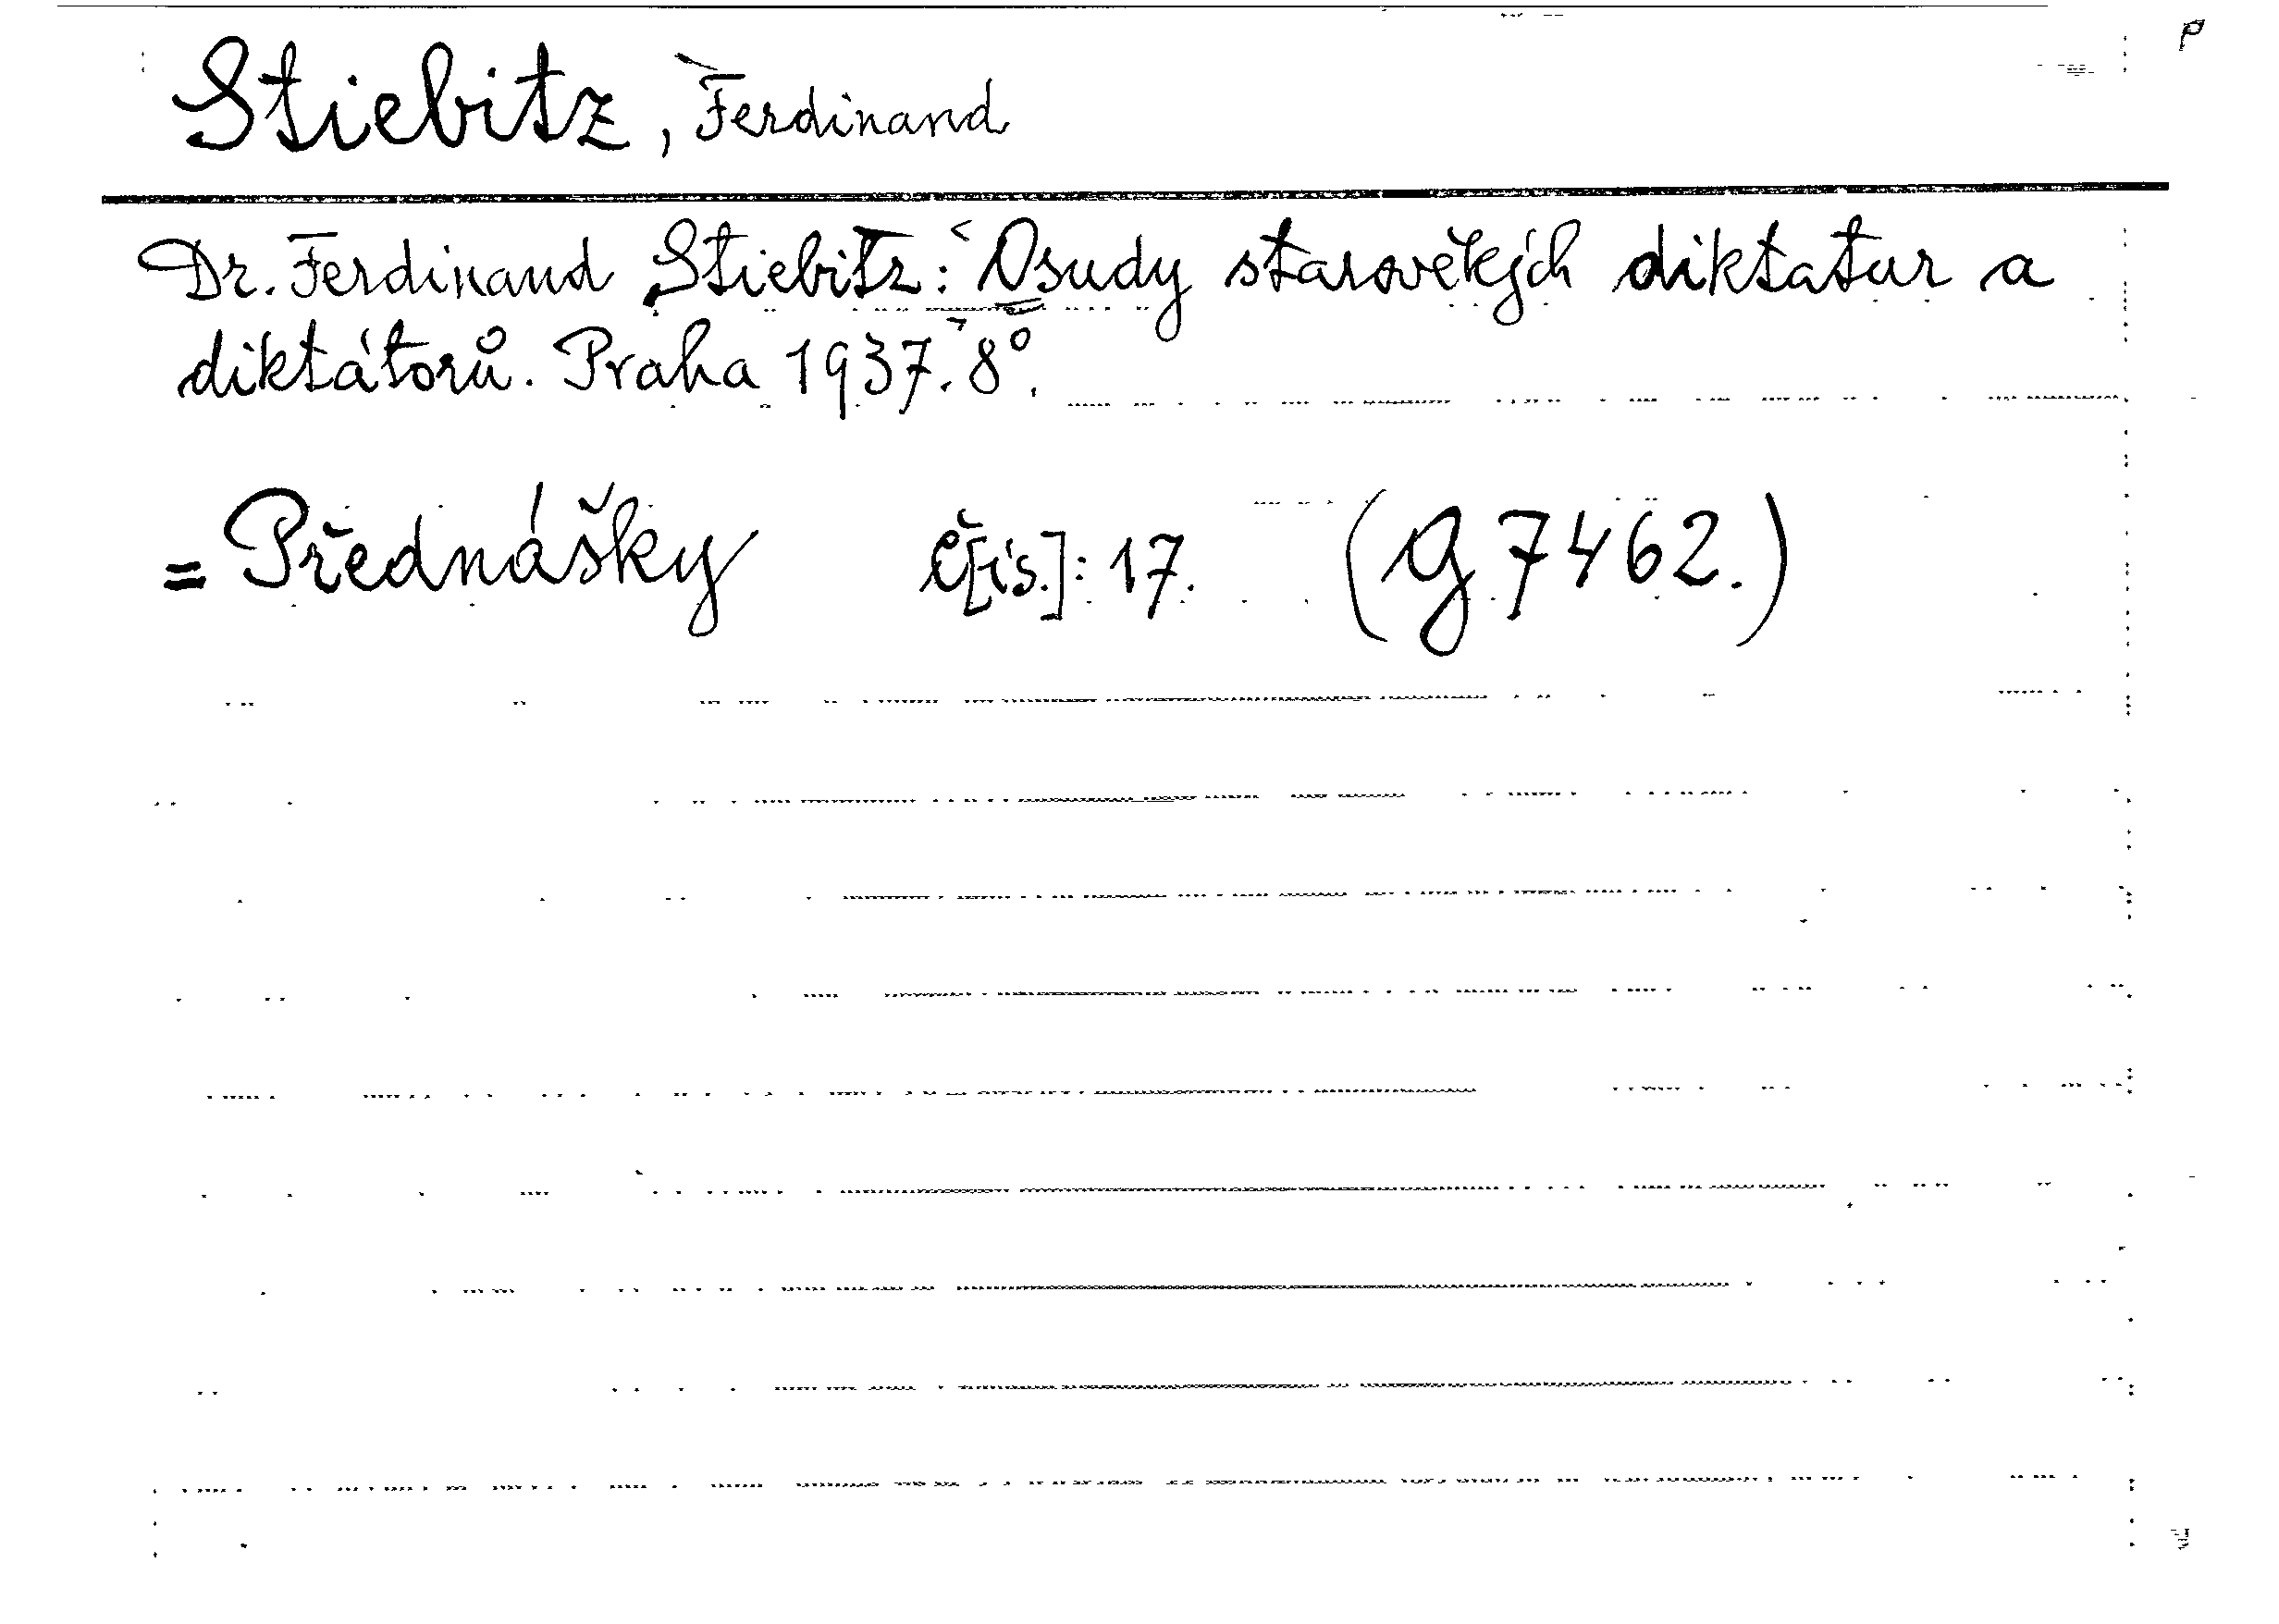 Stiebitz, Ferdinand
Dr. Ferdinand Stiebitz: Osudy starověkých diktatur a
diktátorů. Praha 1937. 8°.
= Přednášky č[ís.]: 17. (G 7462.)